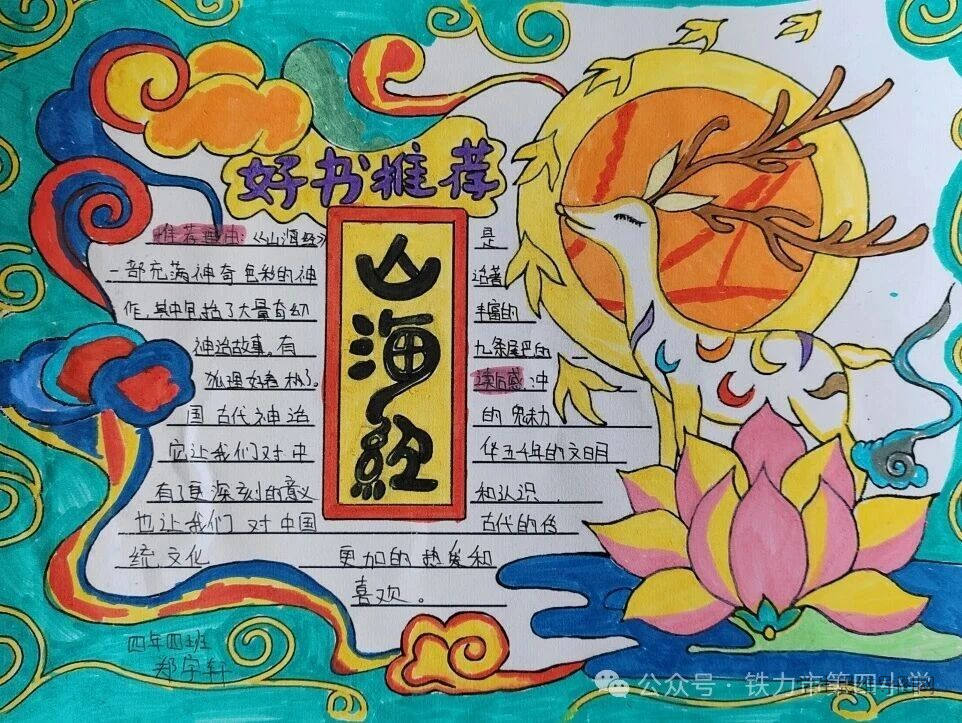 好书推荐
山海经
推荐理由:《山海经》是
一部充满神奇色彩的神话著
作,其中包括了大量奇幻丰富的
神话故事。有九条尾巴的
狐狸好看极了。读后感:中
国古代神话的魅力
它让我们对中华五千年的文明
有了更深刻的意义和认识
也让我们对中国古代的传
统文化更加的热爱和
喜欢。
四年四班
郑宇轩
公众号·铁力市第四小学